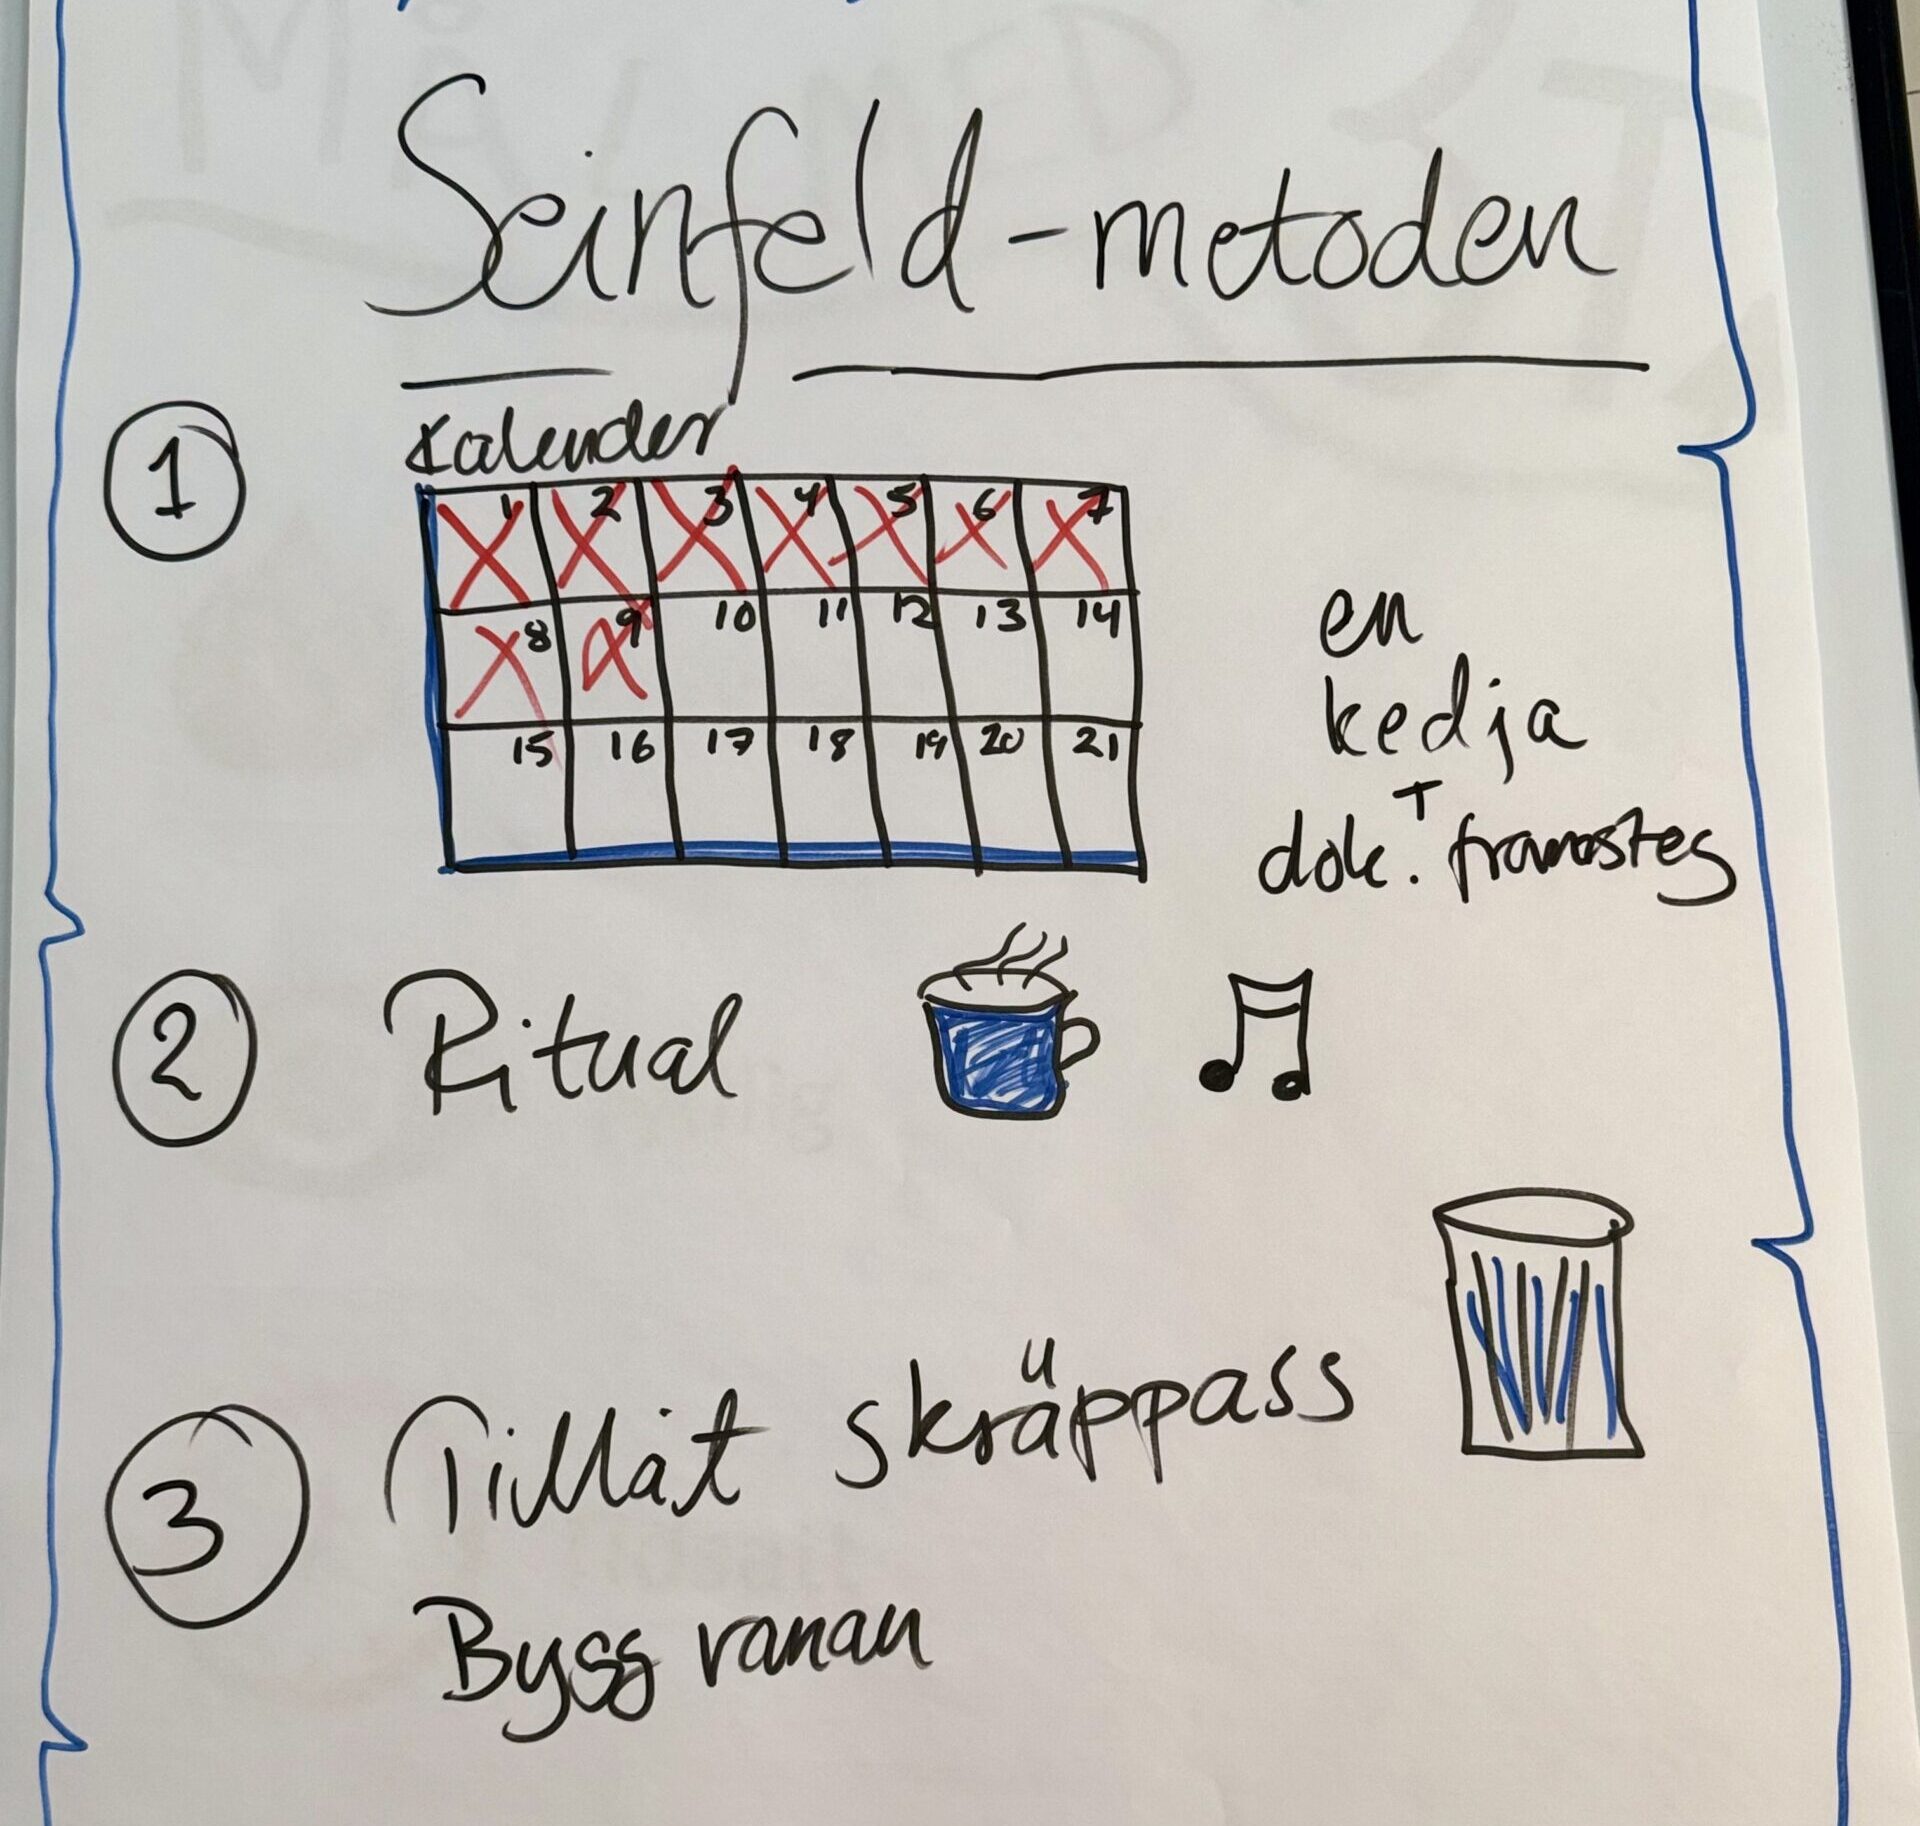 Seinfeld-metoden
1
Kalender
1 2 3 4 5 6 7
8 9 10 11 12 13 14
15 16 17 18 19 20 21
en
kedja
+
dok. framsteg
2 Ritual
3 Tillåt skräppass
Bygg vanan